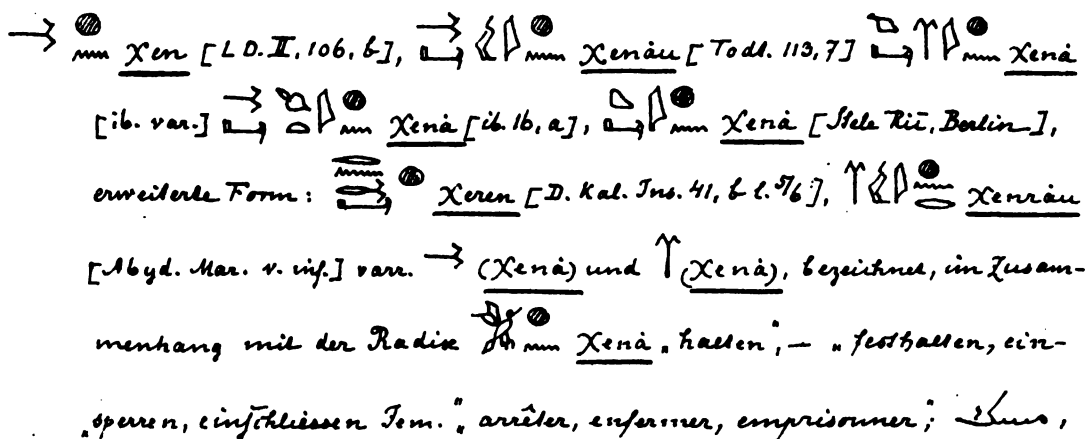 Xen [LD. II, 106, b], Xenȧu [Todt. 113, 7] Xenȧ
[ib. var.] Xenȧ [ib. 1b, a], Xenȧ [Stele Berlin],
erweiterte Form: Xeren [D. Kal. Ins. 41, b l. 5/6], Xenrȧu
[Abyd. Mar. v. inf.] varr. (Xenȧ) und (Xenȧ), bezeichnet, im Zusam-
menhang mit der Radix Xenȧ „halten“, — „festhalten, ein-
„sperren, einschliessen Jem.“ „arrêter, enfermer, emprisonner“;